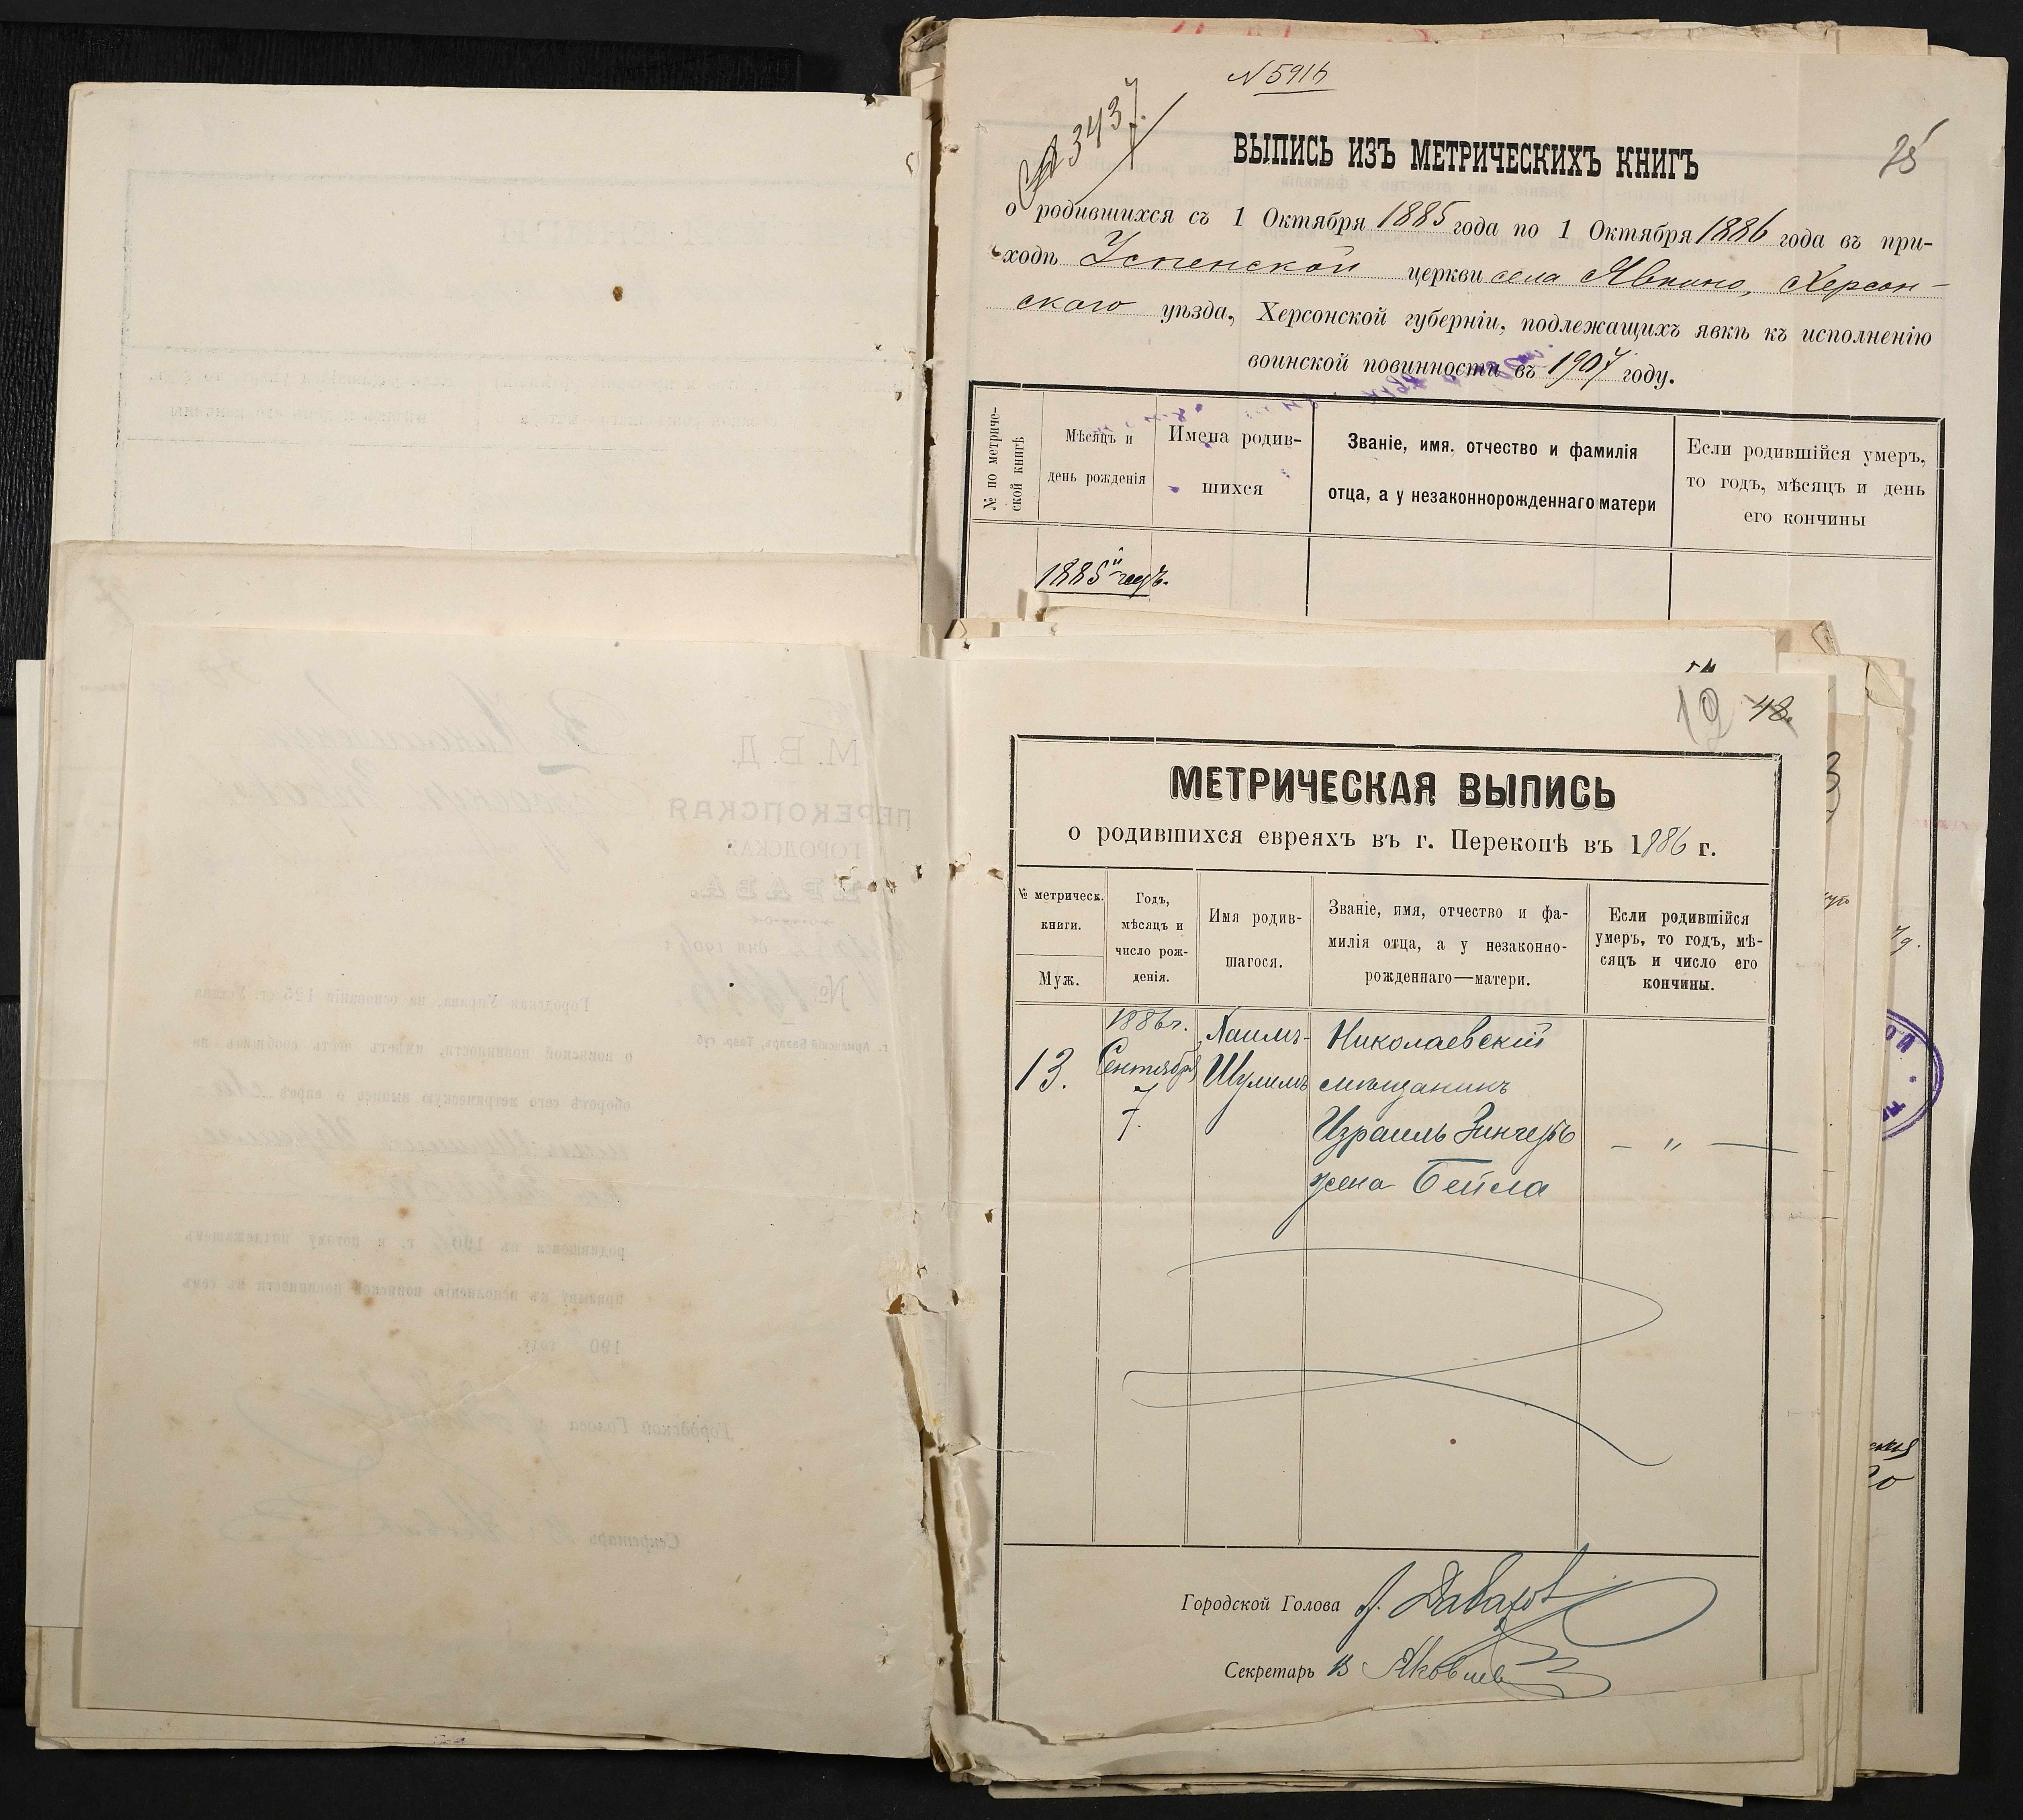 N 5916
№ 3437.
25
ВЫПИСЬ ИЗЪ МЕТРИЧЕСКИХЪ КНИГЪ
о родившихся съ 1 Октября 1885 года по 1 Октября 1886 года въ при-
ходѣ Успенской церкви села Явкино, Херсон-
скаго уѣзда, Херсонской губерніи, подлежащихъ явкѣ къ исполненію
воинской повинности въ 1907 году.
№ по метриче-
ской книгѣ
Мѣсяцъ и
день рожденія
Имена родив-
шихся
Званіе, имя, отчество и фамилія
отца, а у незаконнорожденнаго матери
Если родившійся умеръ,
то годъ, мѣсяцъ и день
его кончины
1885й годъ.
19 48
МЕТРИЧЕСКАЯ ВЫПИСЬ
о родившихся евреяхъ въ г. Перекопѣ въ 1886 г.
№ метрическ.
книги.
Муж.
Годъ,
мѣсяцъ и
число рож-
денія.
Имя родив-
шагося.
Званіе, имя, отчество и фа-
милія отца, а у незаконно-
рожденнаго—матери.
Если родившійся
умеръ, то годъ, мѣ-
сяцъ и число его
кончины.
13.
1886 г.
Сентября
7.
Хаимъ-
Шулимъ
Николаевскій
мѣщанинъ
Израиль Зингеръ
жена Бейла
— „ —
Городской Голова
Секретарь В Яковлев
М. В. Д.
ПЕРЕКОПСКАЯ
ГОРОДСКАЯ
УПРАВА.
г. Армянскій Базаръ, Тавр. губ.
Городская Управа, на основаніи 125 ст. Устава
о воинской повинности, имѣетъ честь сообщить на
оборотѣ сего метрическую выпись о евреѣ
призыву къ исполненію воинской повинности въ семъ
190 году.
Городской Голова
Секретарь